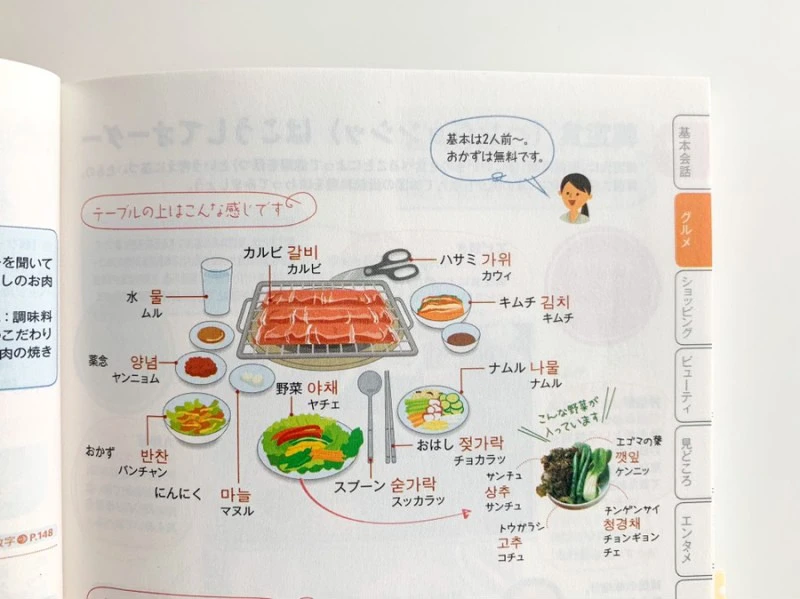 基本は2人前〜。
おかずは無料です。
テーブルの上はこんな感じです
カルビ 갈비
カルビ
ハサミ 가위
カウィ
水 물
ムル
キムチ 김치
キムチ
薬念 양념
ヤンニョム
ナムル 나물
ナムル
野菜 야채
ヤチェ
おかず 반찬
パンチャン
おはし 젓가락
チョカラッ
にんにく 마늘
マヌル
スプーン 숟가락
スッカラッ
こんな野菜が
入っています
エゴマの葉
깻잎
ケンニッ
サンチュ
상추
サンチュ
チンゲンサイ
청경채
チョンギョン
チェ
トウガラシ
고추
コチュ
基本会話
グルメ
ショッピング
ビューティ
見どころ
エンタメ
を聞いて
しのお肉
：調味料
こだわり
肉の焼き
数字 P.148